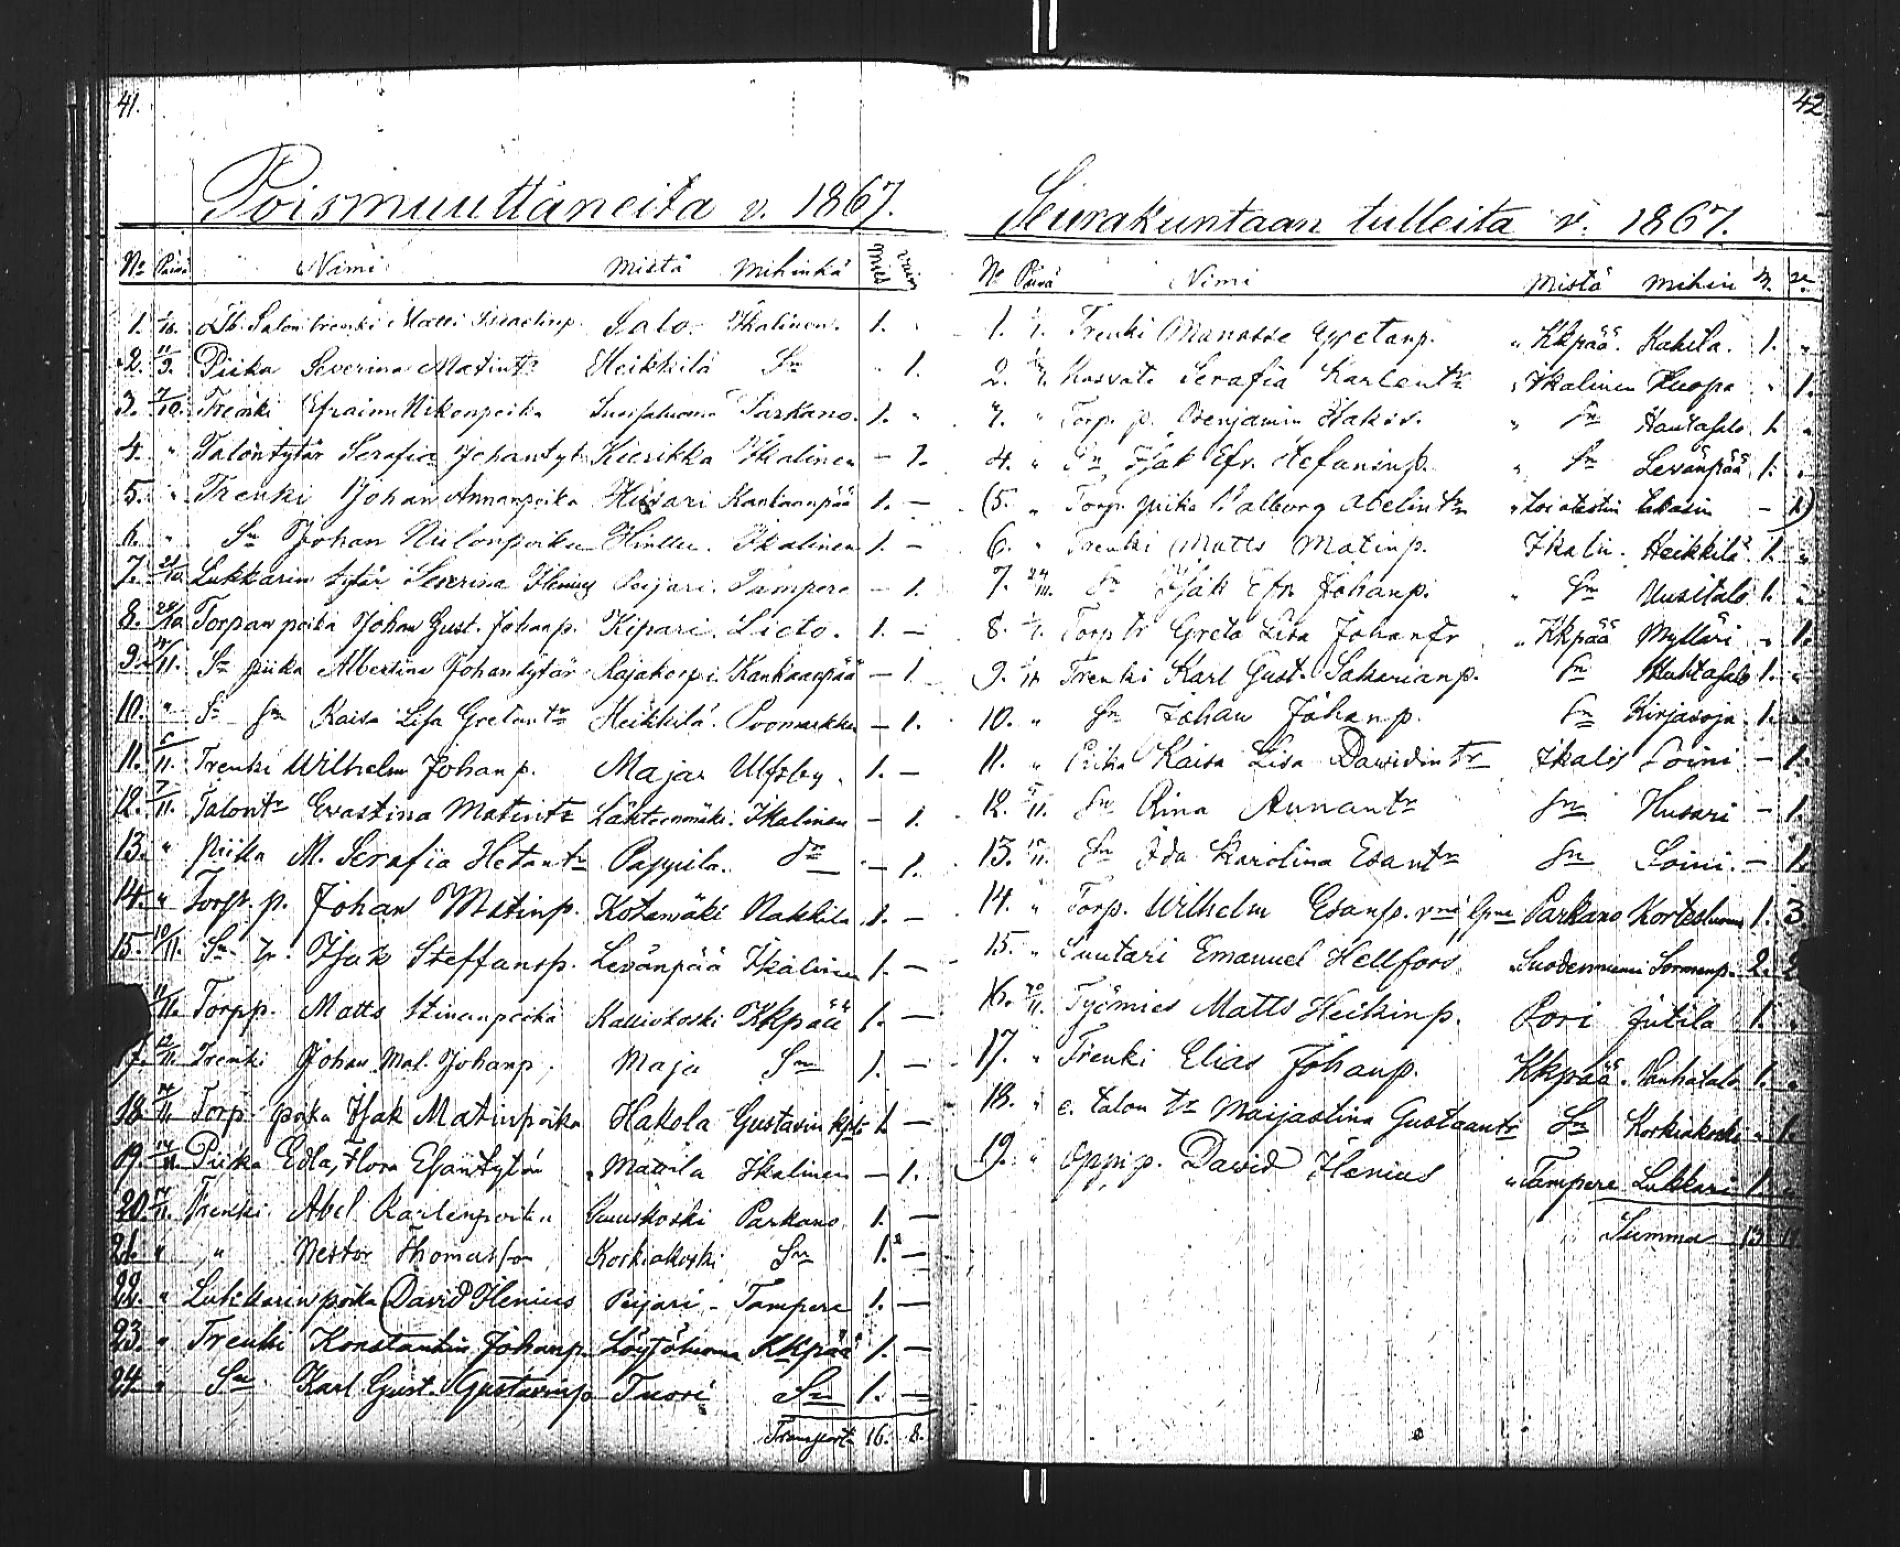 41.
Poismuuttaneita v. 1867.
No Päivä Nimi Mistä Mihinkä Mies Vaim
1. Matti Israelinp. Salo. Ikalinen. 1.
2. 11/3. Piika Severina Matintr Heikkilä Sm 1.
3. 7/10. Trenki Efraim Parkano. 1. "
4. " Talontytär Serafia Johantyt. Kierikka Ikalinen – 1.
5. " Trenki Johan Annanpoika Husari Kankaanpää 1. –
6. " Sm Johan Niilonpoika Ikalinen 1. –
7. Lukkarin tytär Severina Ilenius Peijari. Tampere – 1.
8. Torpan poika Johan Gust. Johanp. Kipari. Lieto. 1. –
9. Sm piika Albertina Johantytär Rajakorpi. Kankaanpää – 1.
10. " Sm Kaisa Lisa Gretantr Heikkilä. Poomarkku – 1.
11. Trenki Wilhelm Johanp. Majar Ulfsby. 1. –
12. 7/11. Talontr Evastina Matintr Ikalinen – 1.
13. " piika M. Serafia Hetantr Pappila. Sm – 1.
14. " Torp. p. Johan Matinp. Kotamäki Nakkila 1. –
15. 10/11. Sm Isak Steffansp. Levänpää Ikalinen 1. –
11/11. Torpp. Matts Stinanpoika Kallioskoski Kkpää 1. –
17. 12/11. Trenki Johan Mat. Johanp. Maja Sm 1. –
18. 14/11. Torp. poika Isak Matinpoika Hakola Gustavin 1. –
19. 14/11. Piika Edla Flora Esantytär Mattila Ikalinen – 1.
20. 14/11. Trenki Abel Karlenpoika Parkano 1. –
21. " " Nestor Thomasson Koskiakoski Sm 1. –
22. " Lukkarinpoika David Ilenius Peijari – Tampere 1. –
23. " Trenki Konstantin Johanp. Löytöluoma Kkpää 1. –
24. " Sm Karl Gust. Gustavinp. Tuori Sm 1. –
Transport 16. 8.
42
Seurakuntaan tulleita v. 1867.
No Päivä Nimi Mistä Mihin M. V.
1. Trenki Manasse Gretanp. " Kkpää. Kahila. 1. "
2. Kasvatt. Serafia Karlentr " Ikalinen Huopa " 1.
" Torp. p. Benjamin Isakss. " Sm Hautasalo 1. "
4. " Sm Isak Efr. Stefaninp. " Sm Levänpää 1. "
(5. " Torp. piika Valborg Abelintr – 1)
6. " Trenki Matts Matinp. Ikalin. Heikkilä 1. "
7. Sm Isak Efr. Johanp. " Sm Uusitalo 1. "
8. Torp tr Greta Lisa Johantr " Kkpää Mylläri " 1.
9. Trenki Karl Gust. Sakarianp. Sm Huhtasalo 1. "
10. " Sm Johan Johanp. Sm Kirjasoja 1. "
11. " Piika Kaisa Lisa Davidintr Ikalis Soini – 1.
12. Sm Rina Annantr Sm Husari – 1.
13. Sm Ida Karolina Esantr Sm Soini. – 1.
14. " Torp. Wilhelm Esanp. Parkano Kortesluoma 1. 3.
15. " Suutari Emanuel Hellfors " Suodenniemi 2. 2
16. Työmies Matts Heikinp. Pori Jutila 1. "
17. " Trenki Elias Johanp. Kkpää. Vanhatalo 1. "
18. " e. talon tr Maijastina Gustaantr Sm Koskiakoski " 1.
19. " Oppip. David Ilenius " Tampere Lukkari 1. "
Summa 13 11